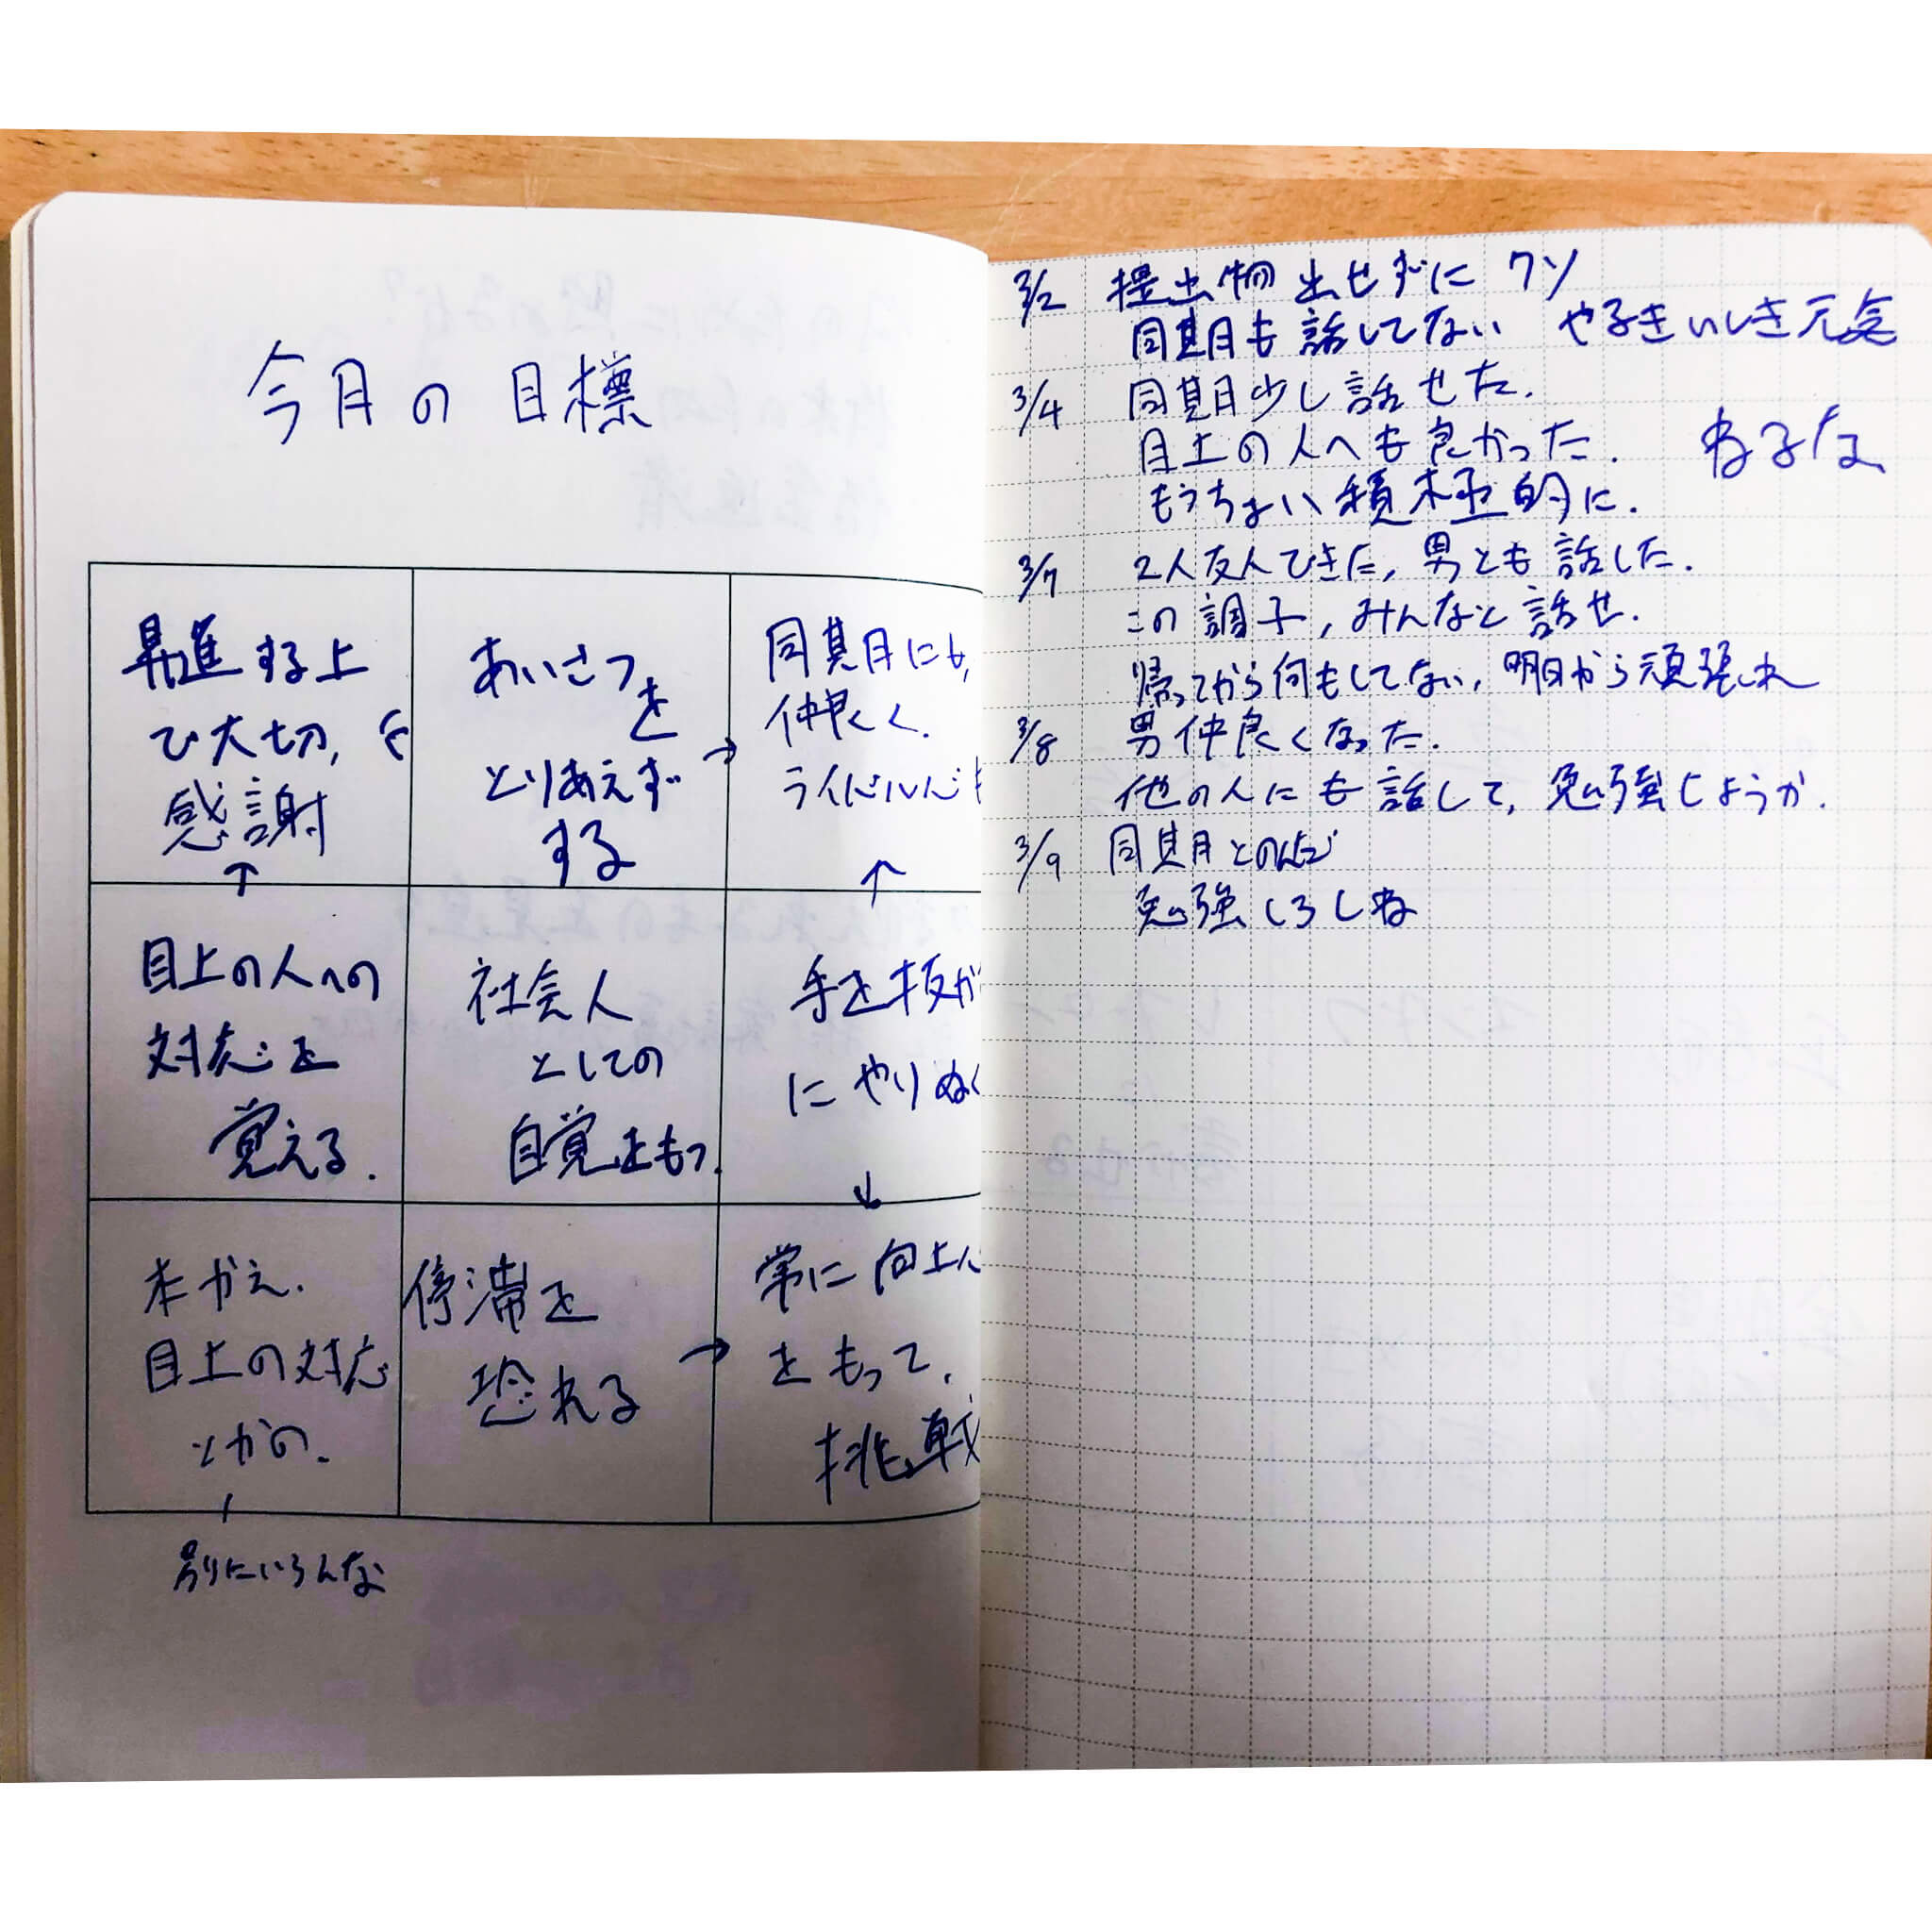 今月の目標
昇進する上
で大切,
感謝
あいさつ
を
とりあえず
する
同期にも,
仲良く.
ライバル
目上の人への
対応を
覚える.
社会人
としての
自覚をもつ.
手を抜か
にやりぬく
本かえ.
目上の対応
とかの.
停滞を
恐れる
常に向上
をもって.
挑戦
別にいろんな
3/2 提出物出せずにクソ
同期も話してない いしき元気
3/4 同期少し話せた.
目上の人へも良かった. ねるな
もうちょい積極的に.
3/7 2人友人できた, 男とも話した.
この調子, みんなと話せ.
帰ってから何もしてない, 明日から頑張れ
3/8 男仲良くなった.
他の人にも話して, 勉強しようか.
3/9 同期とのんだ
勉強しろしね